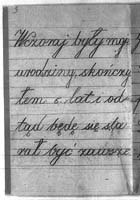 Wczoraj były moje
urodziny, skończy
łem 6. lat i od
tąd będę się sta
rał być zawsze